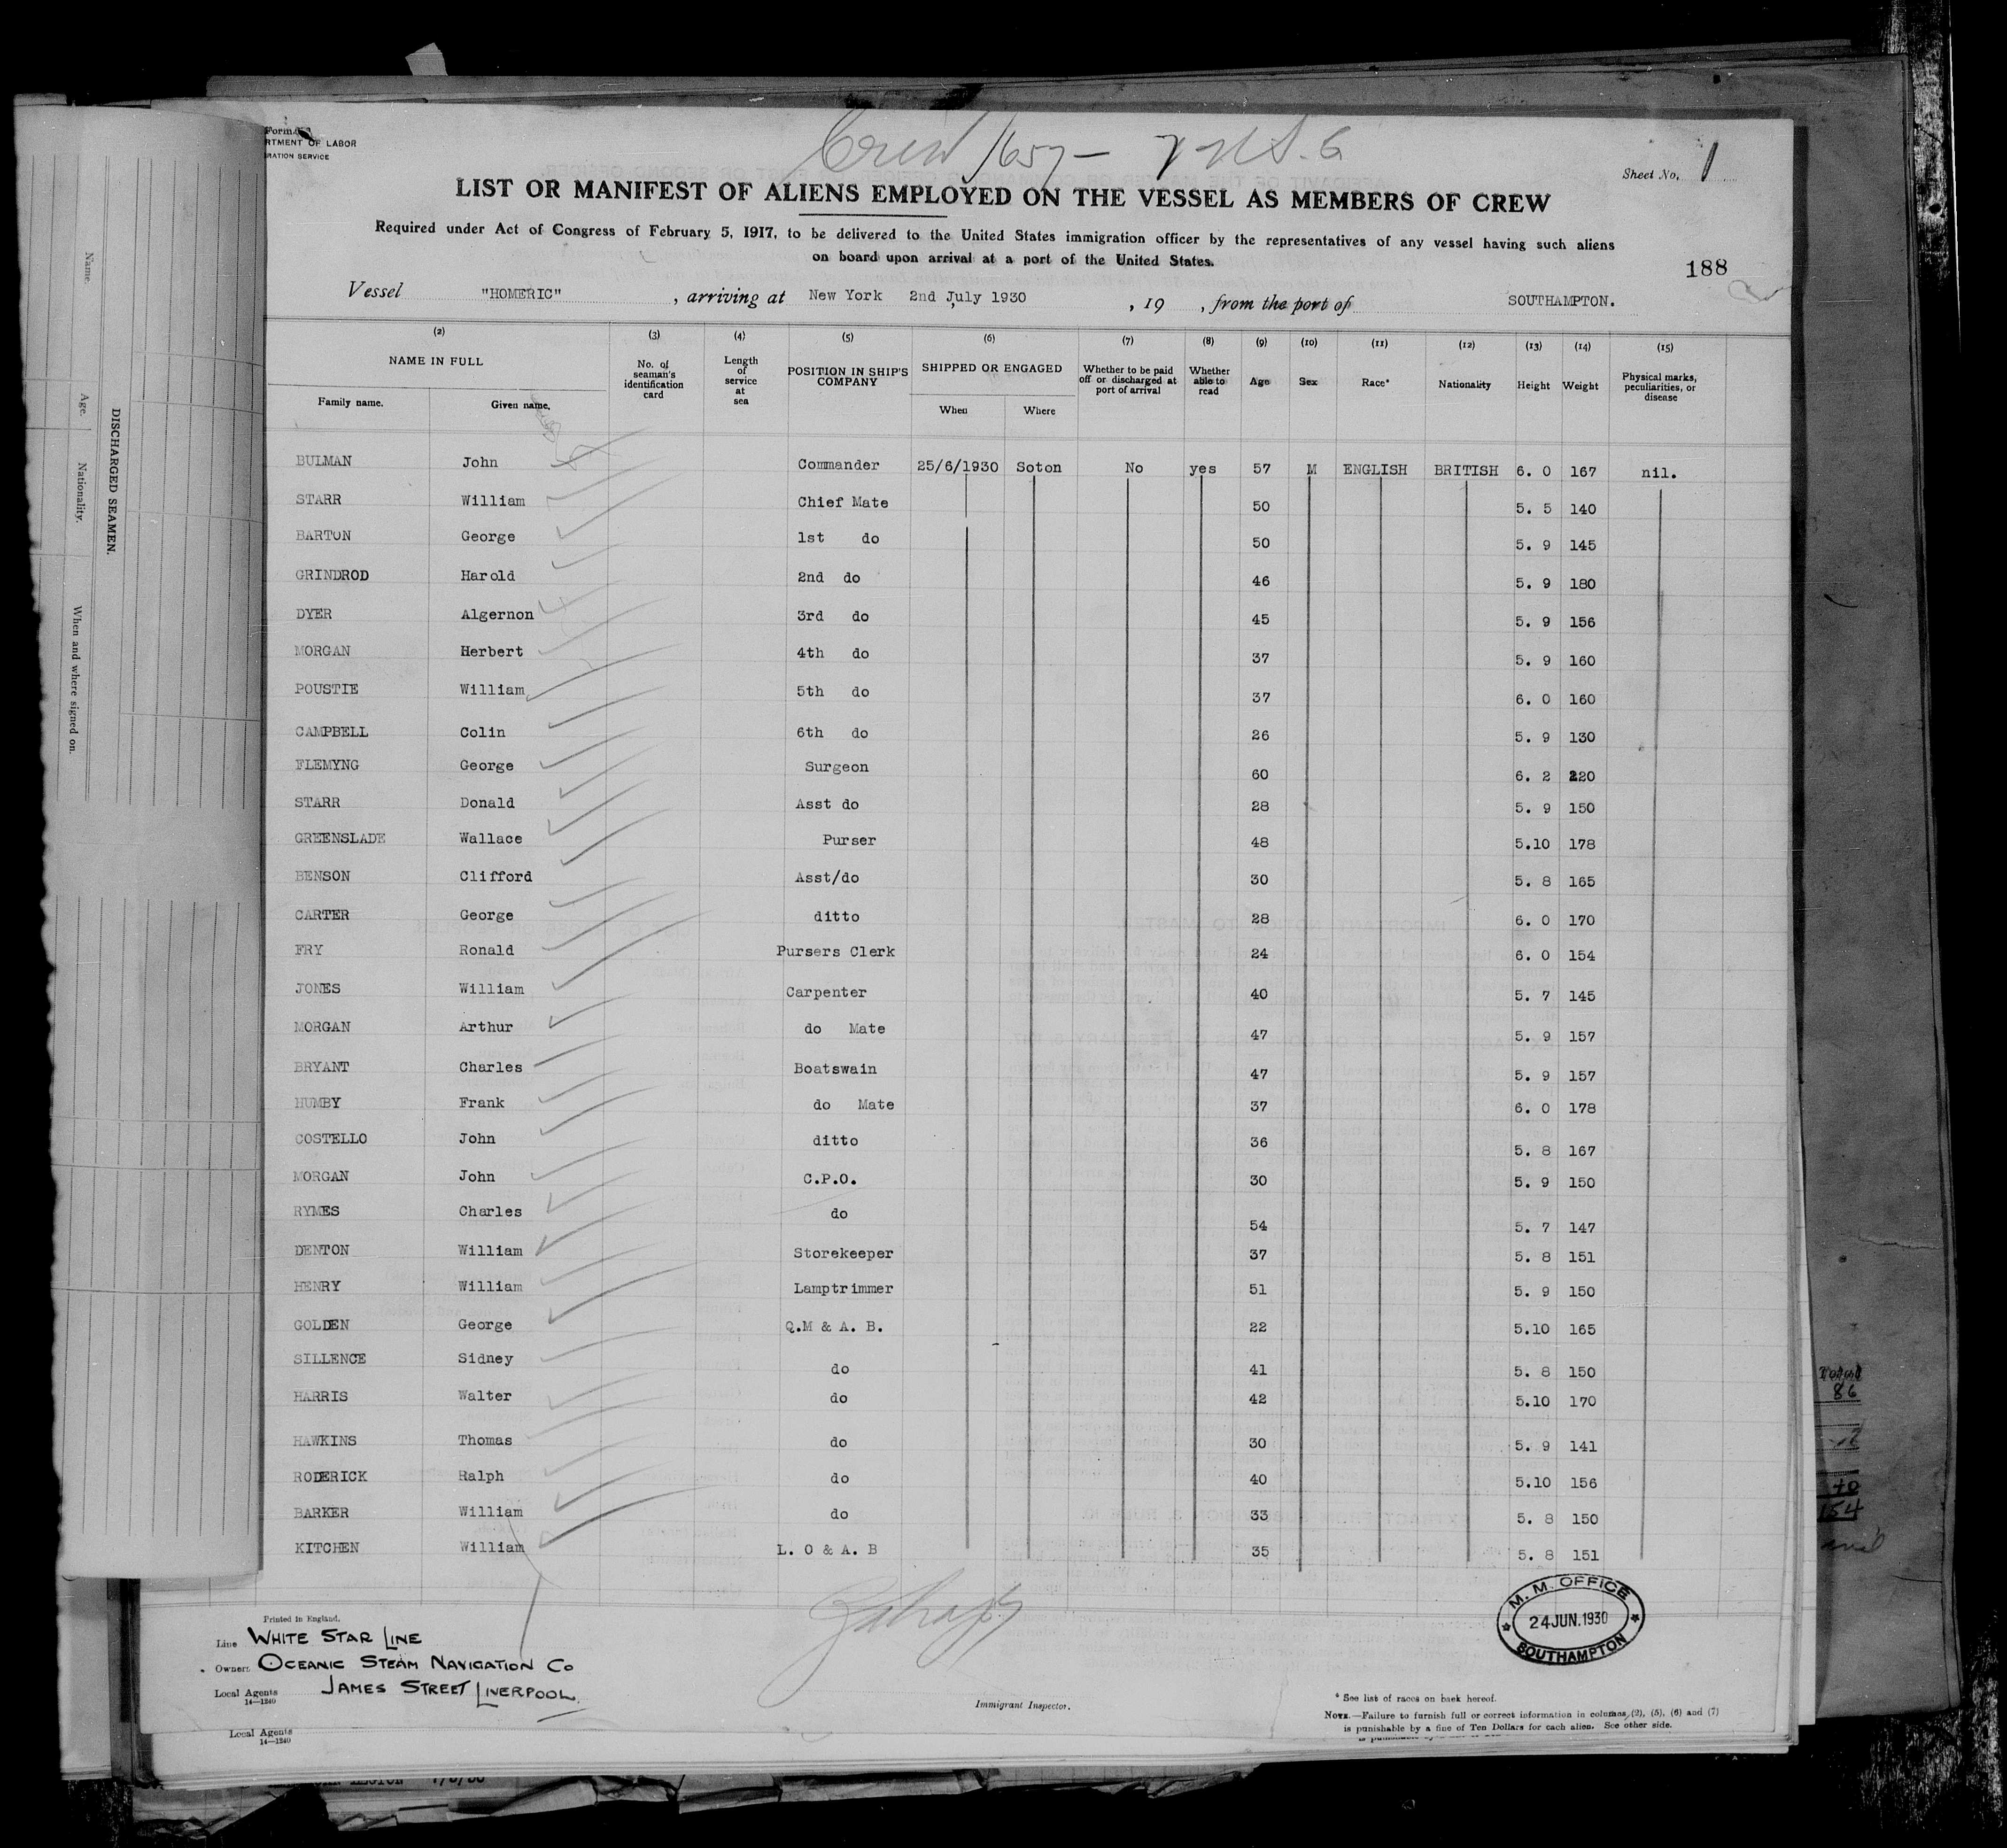 Form
RTMENT OF LABOR
RATION SERVICE
Crew 1657 —
Sheet No. 1
LIST OR MANIFEST OF ALIENS EMPLOYED ON THE VESSEL AS MEMBERS OF CREW
Required under Act of Congress of February 5, 1917, to be delivered to the United States immigration officer by the representatives of any vessel having such aliens
on board upon arrival at a port of the United States.
188
Vessel "HOMERIC", arriving at New York 2nd July 1930, 19 , from the port of SOUTHAMPTON.
(2) (3) (4) (5) (6) (7) (8) (9) (10) (11) (12) (13) (14) (15)
NAME IN FULL
Family name. Given name.
No. of seaman's identification card
Length of service at sea
POSITION IN SHIP'S COMPANY
SHIPPED OR ENGAGED
When Where
Whether to be paid off or discharged at port of arrival
Whether able to read
Age Sex Race* Nationality Height Weight
Physical marks, peculiarities, or disease
BULMAN John Commander 25/6/1930 Soton No yes 57 M ENGLISH BRITISH 6. 0 167 nil.
STARR William Chief Mate 50 5. 5 140
BARTON George 1st do 50 5. 9 145
GRINDROD Harold 2nd do 46 5. 9 180
DYER Algernon 3rd do 45 5. 9 156
MORGAN Herbert 4th do 37 5. 9 160
POUSTIE William 5th do 37 6. 0 160
CAMPBELL Colin 6th do 26 5. 9 130
FLEMYNG George Surgeon 60 6. 2 220
STARR Donald Asst do 28 5. 9 150
GREENSLADE Wallace Purser 48 5.10 178
BENSON Clifford Asst/do 30 5. 8 165
CARTER George ditto 28 6. 0 170
FRY Ronald Pursers Clerk 24 6. 0 154
JONES William Carpenter 40 5. 7 145
MORGAN Arthur do Mate 47 5. 9 157
BRYANT Charles Boatswain 47 5. 9 157
HUMBY Frank do Mate 37 6. 0 178
COSTELLO John ditto 36 5. 8 167
MORGAN John C.P.O. 30 5. 9 150
RYMES Charles do 54 5. 7 147
DENTON William Storekeeper 37 5. 8 151
HENRY William Lamptrimmer 51 5. 9 150
GOLDEN George Q.M & A. B. 22 5.10 165
SILLENCE Sidney do 41 5. 8 150
HARRIS Walter do 42 5.10 170
HAWKINS Thomas do 30 5. 9 141
RODERICK Ralph do 40 5.10 156
BARKER William do 33 5. 8 150
KITCHEN William L. O & A. B 35 5. 8 151
Printed in England.
Line WHITE STAR LINE
Owners OCEANIC STEAM NAVIGATION Co
Local Agents JAMES STREET LIVERPOOL
14—1240
Immigrant Inspector.
M. M. OFFICE
24 JUN. 1930
SOUTHAMPTON
* See list of races on back hereof.
NOTE.—Failure to furnish full or correct information in columns (2), (5), (6) and (7)
is punishable by a fine of Ten Dollars for each alien. See other side.
Local Agents
14—1240
DISCHARGED SEAMEN.
Name.
Age.
Nationality.
When and where signed on.
Total
86
154